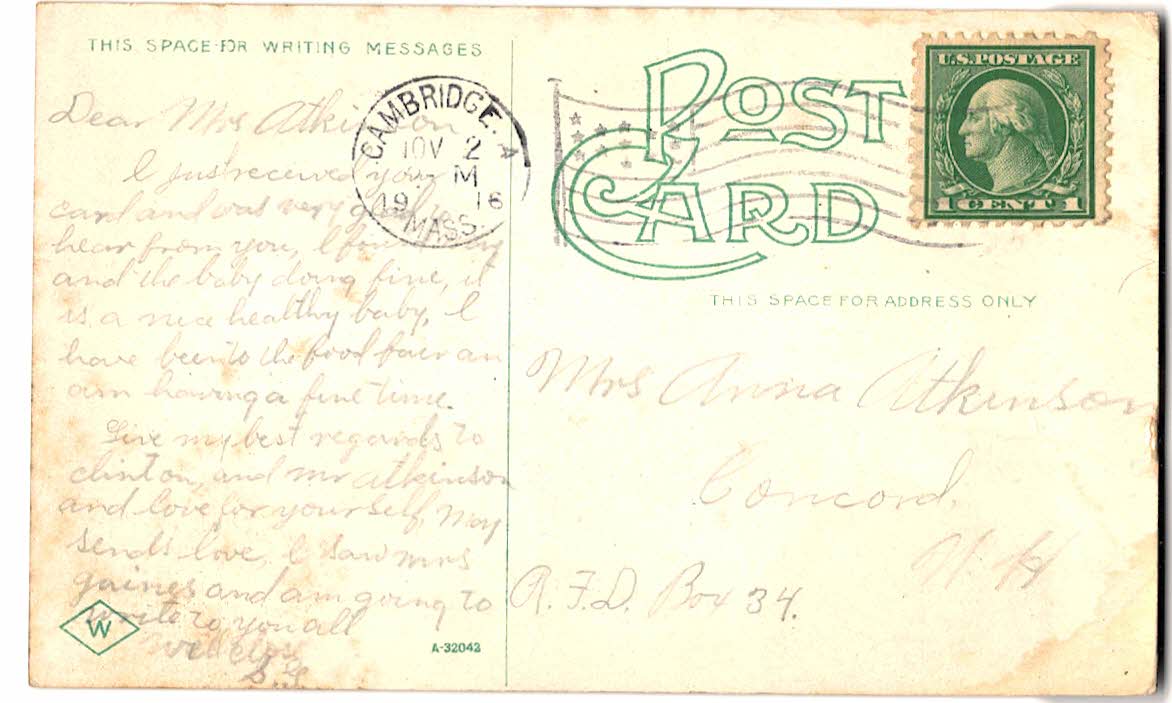 THIS SPACE FOR WRITING MESSAGES
Dear Mrs Atkinson
I just received your
card and was very glad to
hear from you, I found May
and the baby doing fine, it
is a nice healthy baby. I
have been to the food fair an
am having a fine time.
Give my best regards to
clinton, and mr Atkinson
and love for yourself, May
sends love, I saw mrs
gaines and am going to
write to you all
W
A-32042
CAMBRIDGE. A
NOV 2
M
1916
MASS.
POST
CARD
U.S. POSTAGE
1 CENT 1
THIS SPACE FOR ADDRESS ONLY
Mrs Anna Atkinson
Concord,
N. H
R. F. D. Box 34.